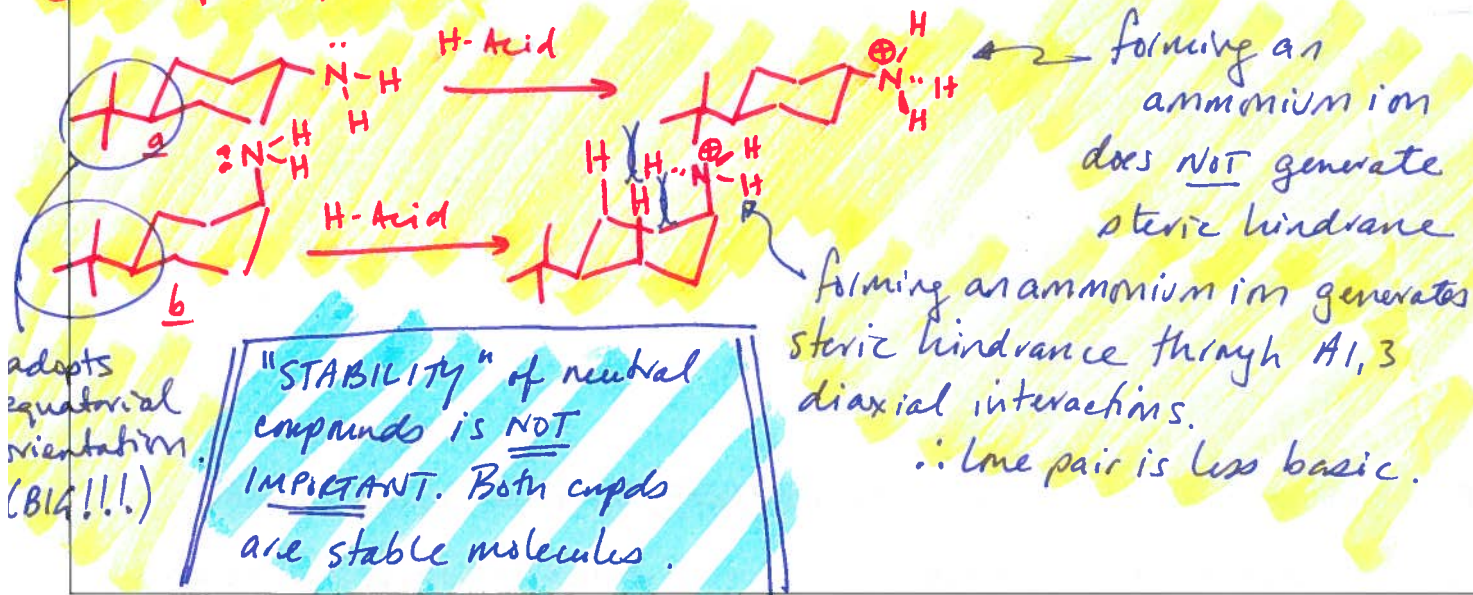 H-Acid
N-H
H
H
a
⊕
H
N
H
H
forming an
ammonium ion
does NOT generate
steric hindrane
:N
H
H
b
H-Acid
H
H
H
⊕
N
H
H
forming an ammonium ion generates
steric hindrance through A1,3
diaxial interactions.
∴ lone pair is less basic.
adopts
equatorial
orientation.
(BIG!!!.)
"STABILITY" of neutral
compounds is NOT
IMPORTANT. Both cmpds
are stable molecules.